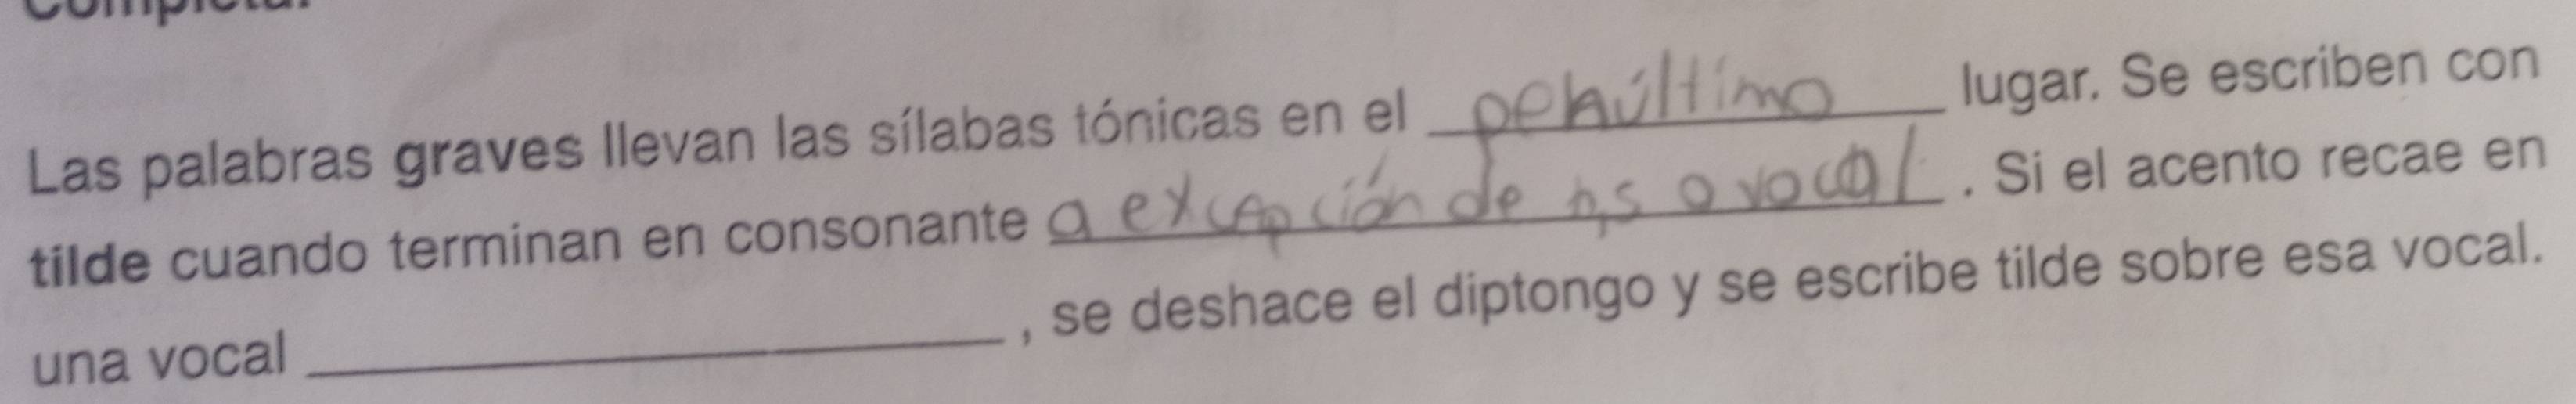 Completa.
Las palabras graves llevan las sílabas tónicas en el penúltimo lugar. Se escriben con
tilde cuando terminan en consonante a excepción de n,s o vocal. Si el acento recae en
una vocal ____________________, se deshace el diptongo y se escribe tilde sobre esa vocal.